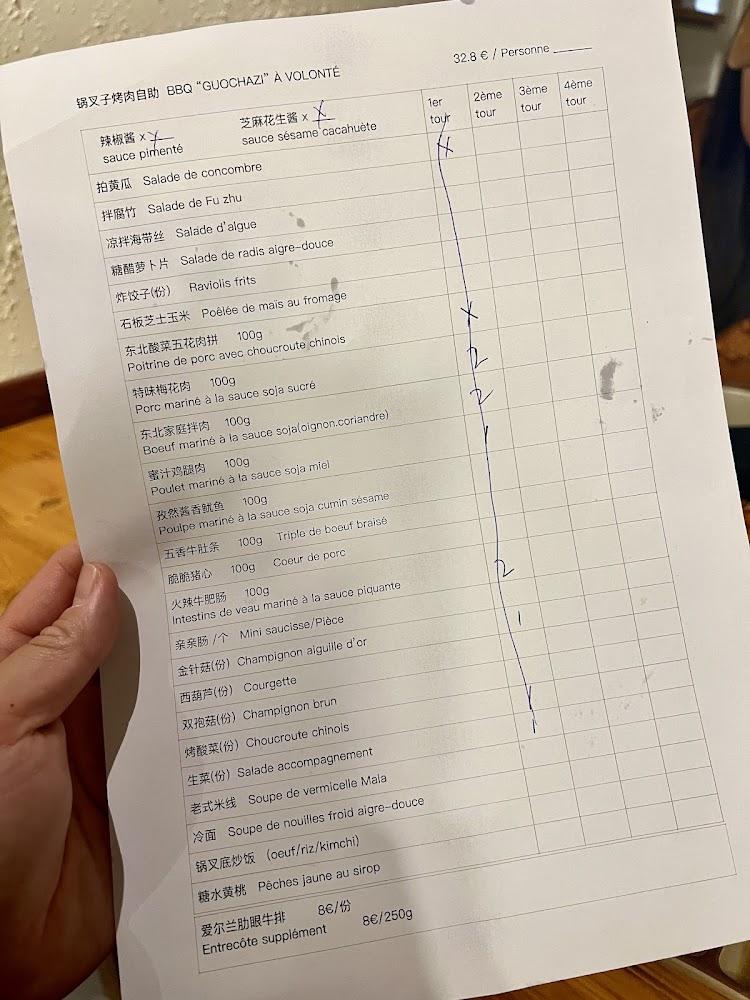 锅叉子烤肉自助 BBQ “GUOCHAZI” À VOLONTÉ
32.8 € / Personne
辣椒酱 x X
sauce pimenté
芝麻花生酱 x X
sauce sésame cacahuète
1er tour
2ème tour
3ème tour
4ème tour
拍黄瓜 Salade de concombre X
拌腐竹 Salade de Fu zhu
凉拌海带丝 Salade d'algue
糖醋萝卜片 Salade de radis aigre-douce
炸饺子(份) Raviolis frits
石板芝士玉米 Poêlée de maïs au fromage X
东北酸菜五花肉拼 100g 2
Poitrine de porc avec choucroute chinois
特味梅花肉 100g 2
Porc mariné à la sauce soja sucré
东北家庭拌肉 100g 1
Boeuf mariné à la sauce soja(oignon.coriandre)
蜜汁鸡腿肉 100g
Poulet mariné à la sauce soja miel
孜然酱香鱿鱼 100g
Poulpe mariné à la sauce soja cumin sésame
五香牛肚条 100g Triple de boeuf braisé
脆脆猪心 100g Coeur de porc
火辣牛肥肠 100g 2
Intestins de veau mariné à la sauce piquante
亲亲肠 /个 Mini saucisse/Pièce 1
金针菇(份) Champignon aiguille d'or
西葫芦(份) Courgette
双孢菇(份) Champignon brun 1
烤酸菜(份) Choucroute chinois 1
生菜(份) Salade accompagnement
老式米线 Soupe de vermicelle Mala
冷面 Soupe de nouilles froid aigre-douce
锅叉底炒饭 (oeuf/riz/kimchi)
糖水黄桃 Pêches jaune au sirop
爱尔兰肋眼牛排 8€/份
Entrecôte supplément 8€/250g